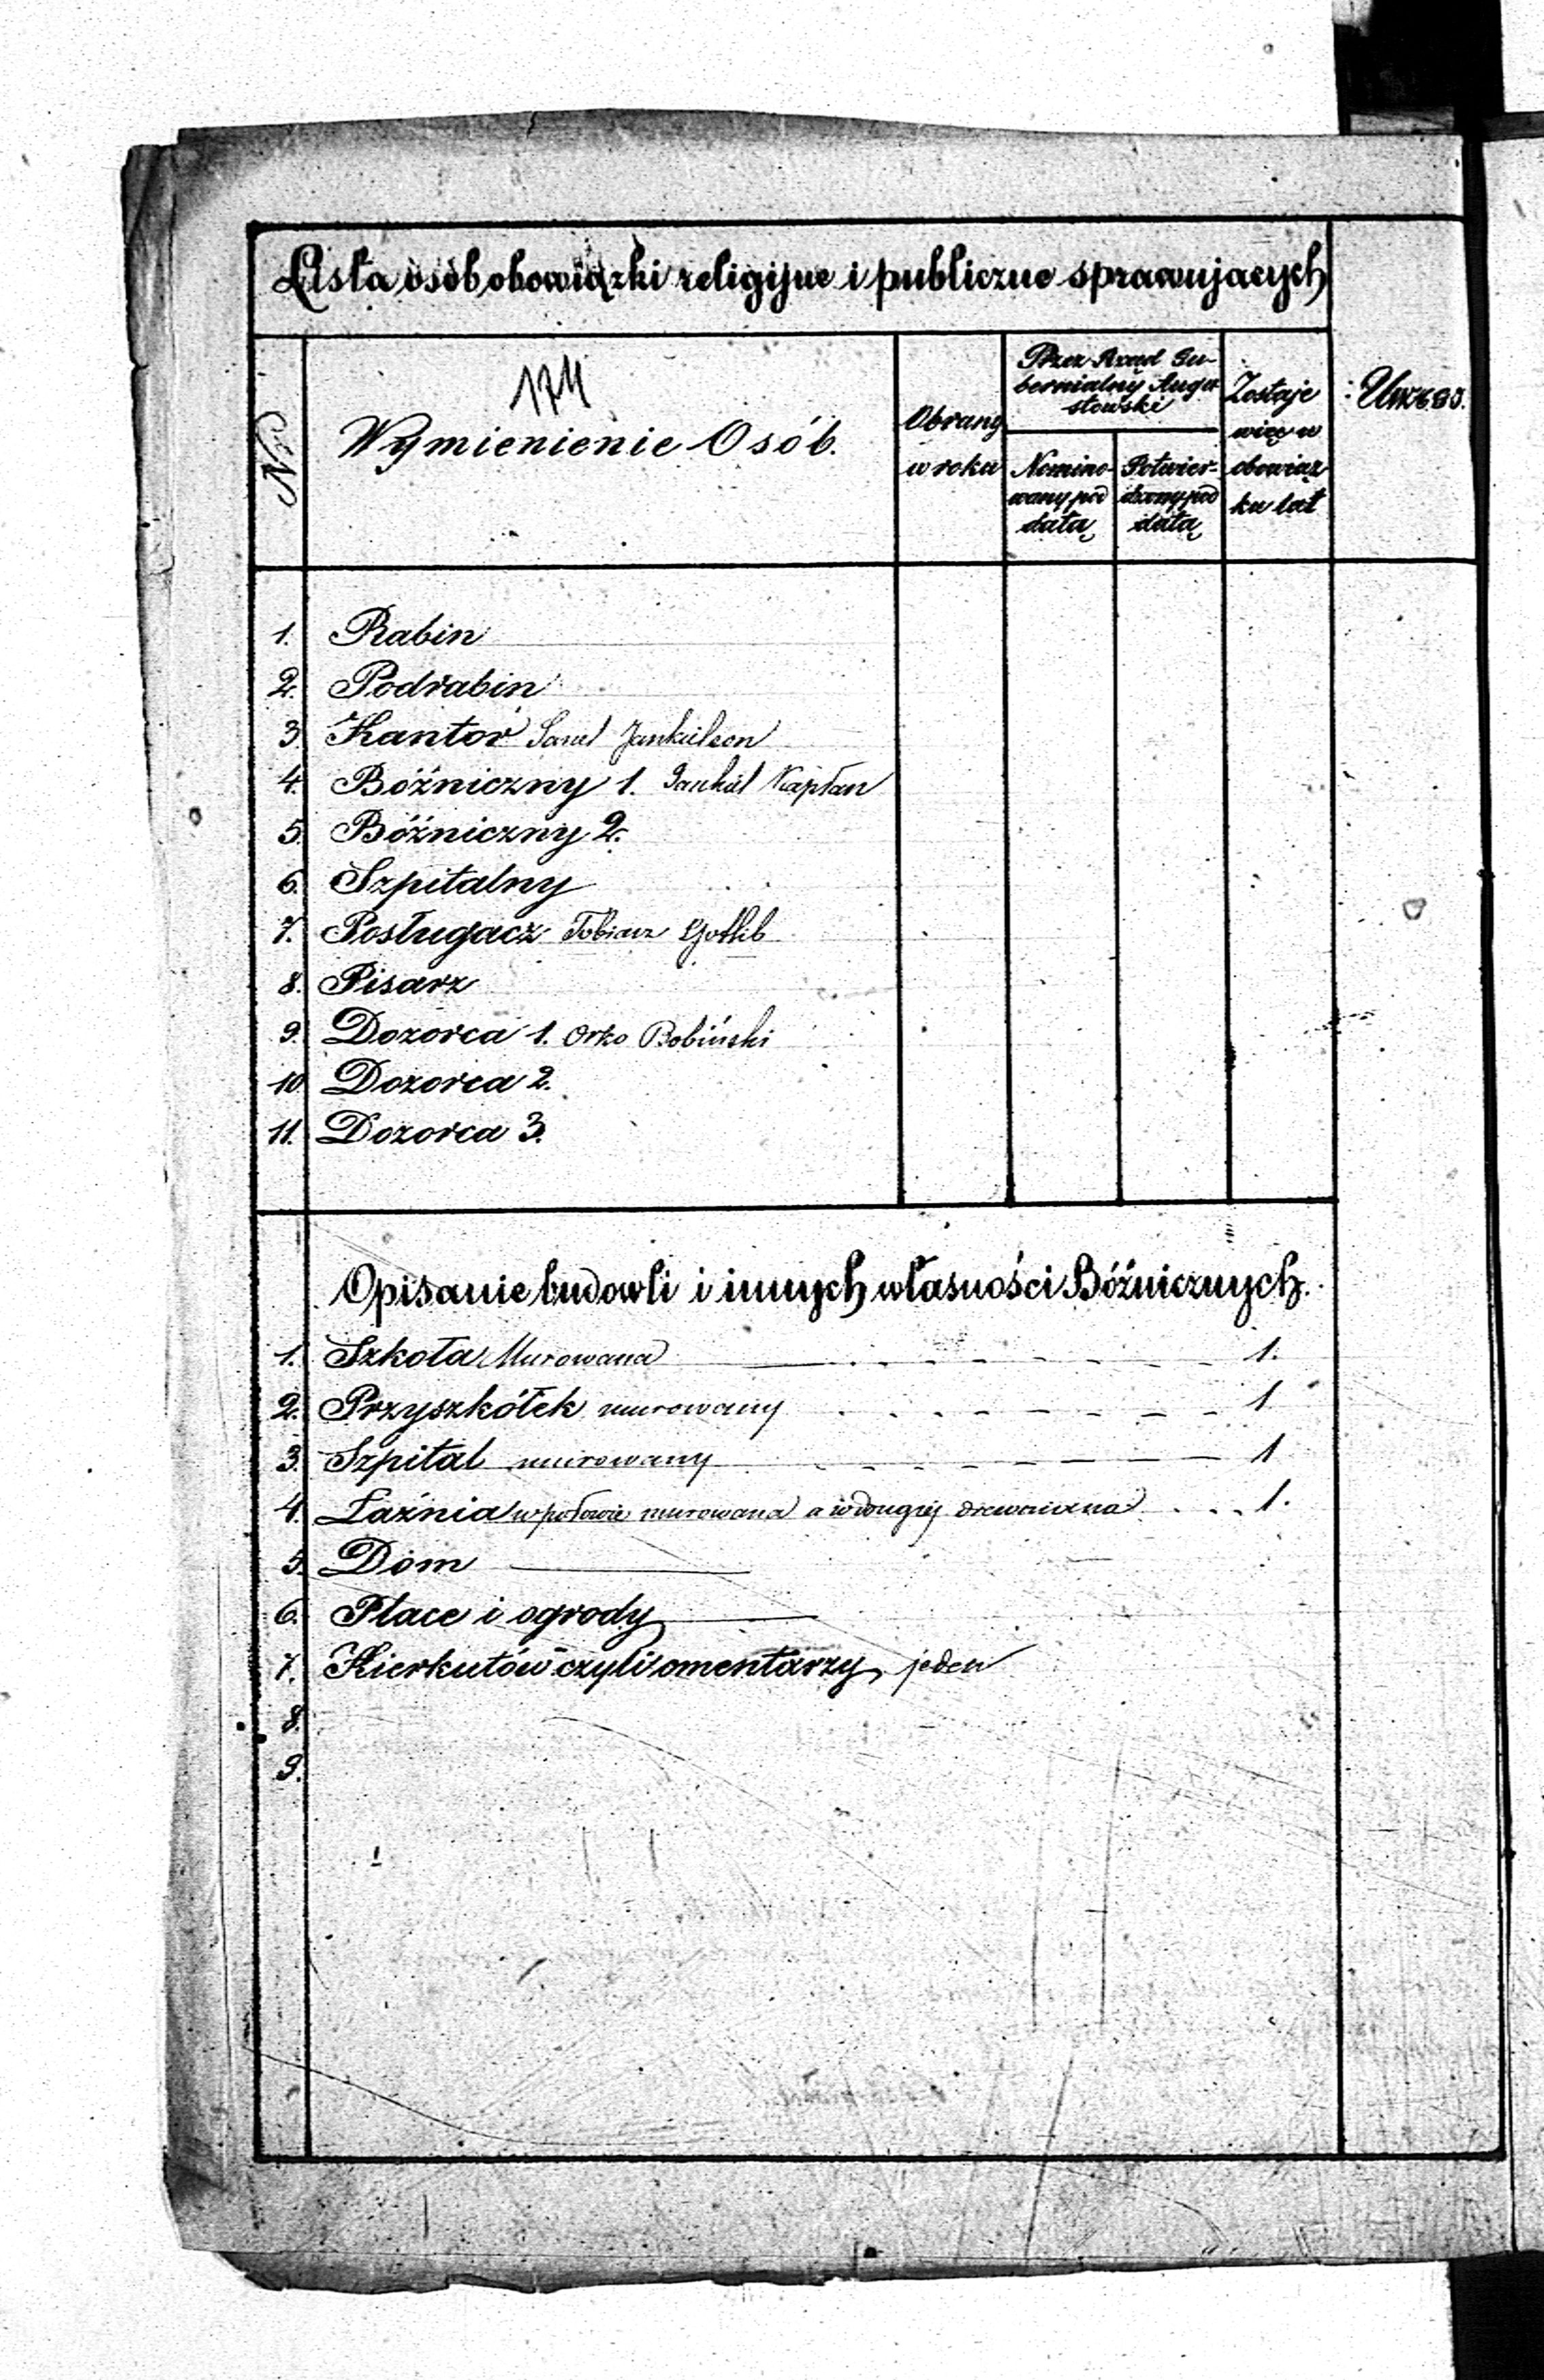 Lista osób obowiązki religijne i publiczne sprawujących
174
Nr
Wymienienie Osób.
Obrany
w roku
Przez Rząd Gu-
bernialny Augu-
stowski
Nomino-
wany pod
datą
Potwier-
dzony pod
datą
Zostaje
więc w
obowiąz
ku lat
1. Rabin
2. Podrabin
3. Kantor Jankielson
4. Bóźniczny 1. Jankiel Kapłan
5. Bóźniczny 2.
6. Szpitalny
7. Posługacz Tobiasz Gotlib
8. Pisarz
9. Dozorca 1. Orko Bobiński
10. Dozorca 2.
11. Dozorca 3.
Opisanie budowli i innych własności Bóźnicznych.
1. Szkoła Murowana 1.
2. Przyszkółek murowany 1
3. Szpital murowany 1
4. Łaźnia w połowie murowana a w drugiej drewniana 1.
5. Dom
6. Place i ogrody
7. Kierkutów czyli smentarzy, jeden
8.
9.